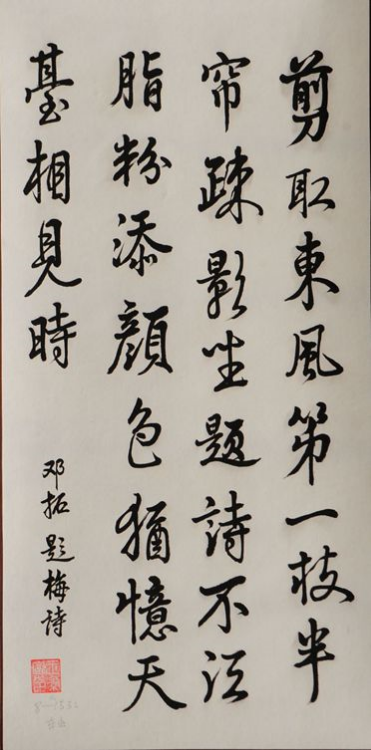 剪取東風第一枝半
帘疎影坐題詩不須
脂粉添顔色猶憶天
臺相見時
邓拓題梅詩